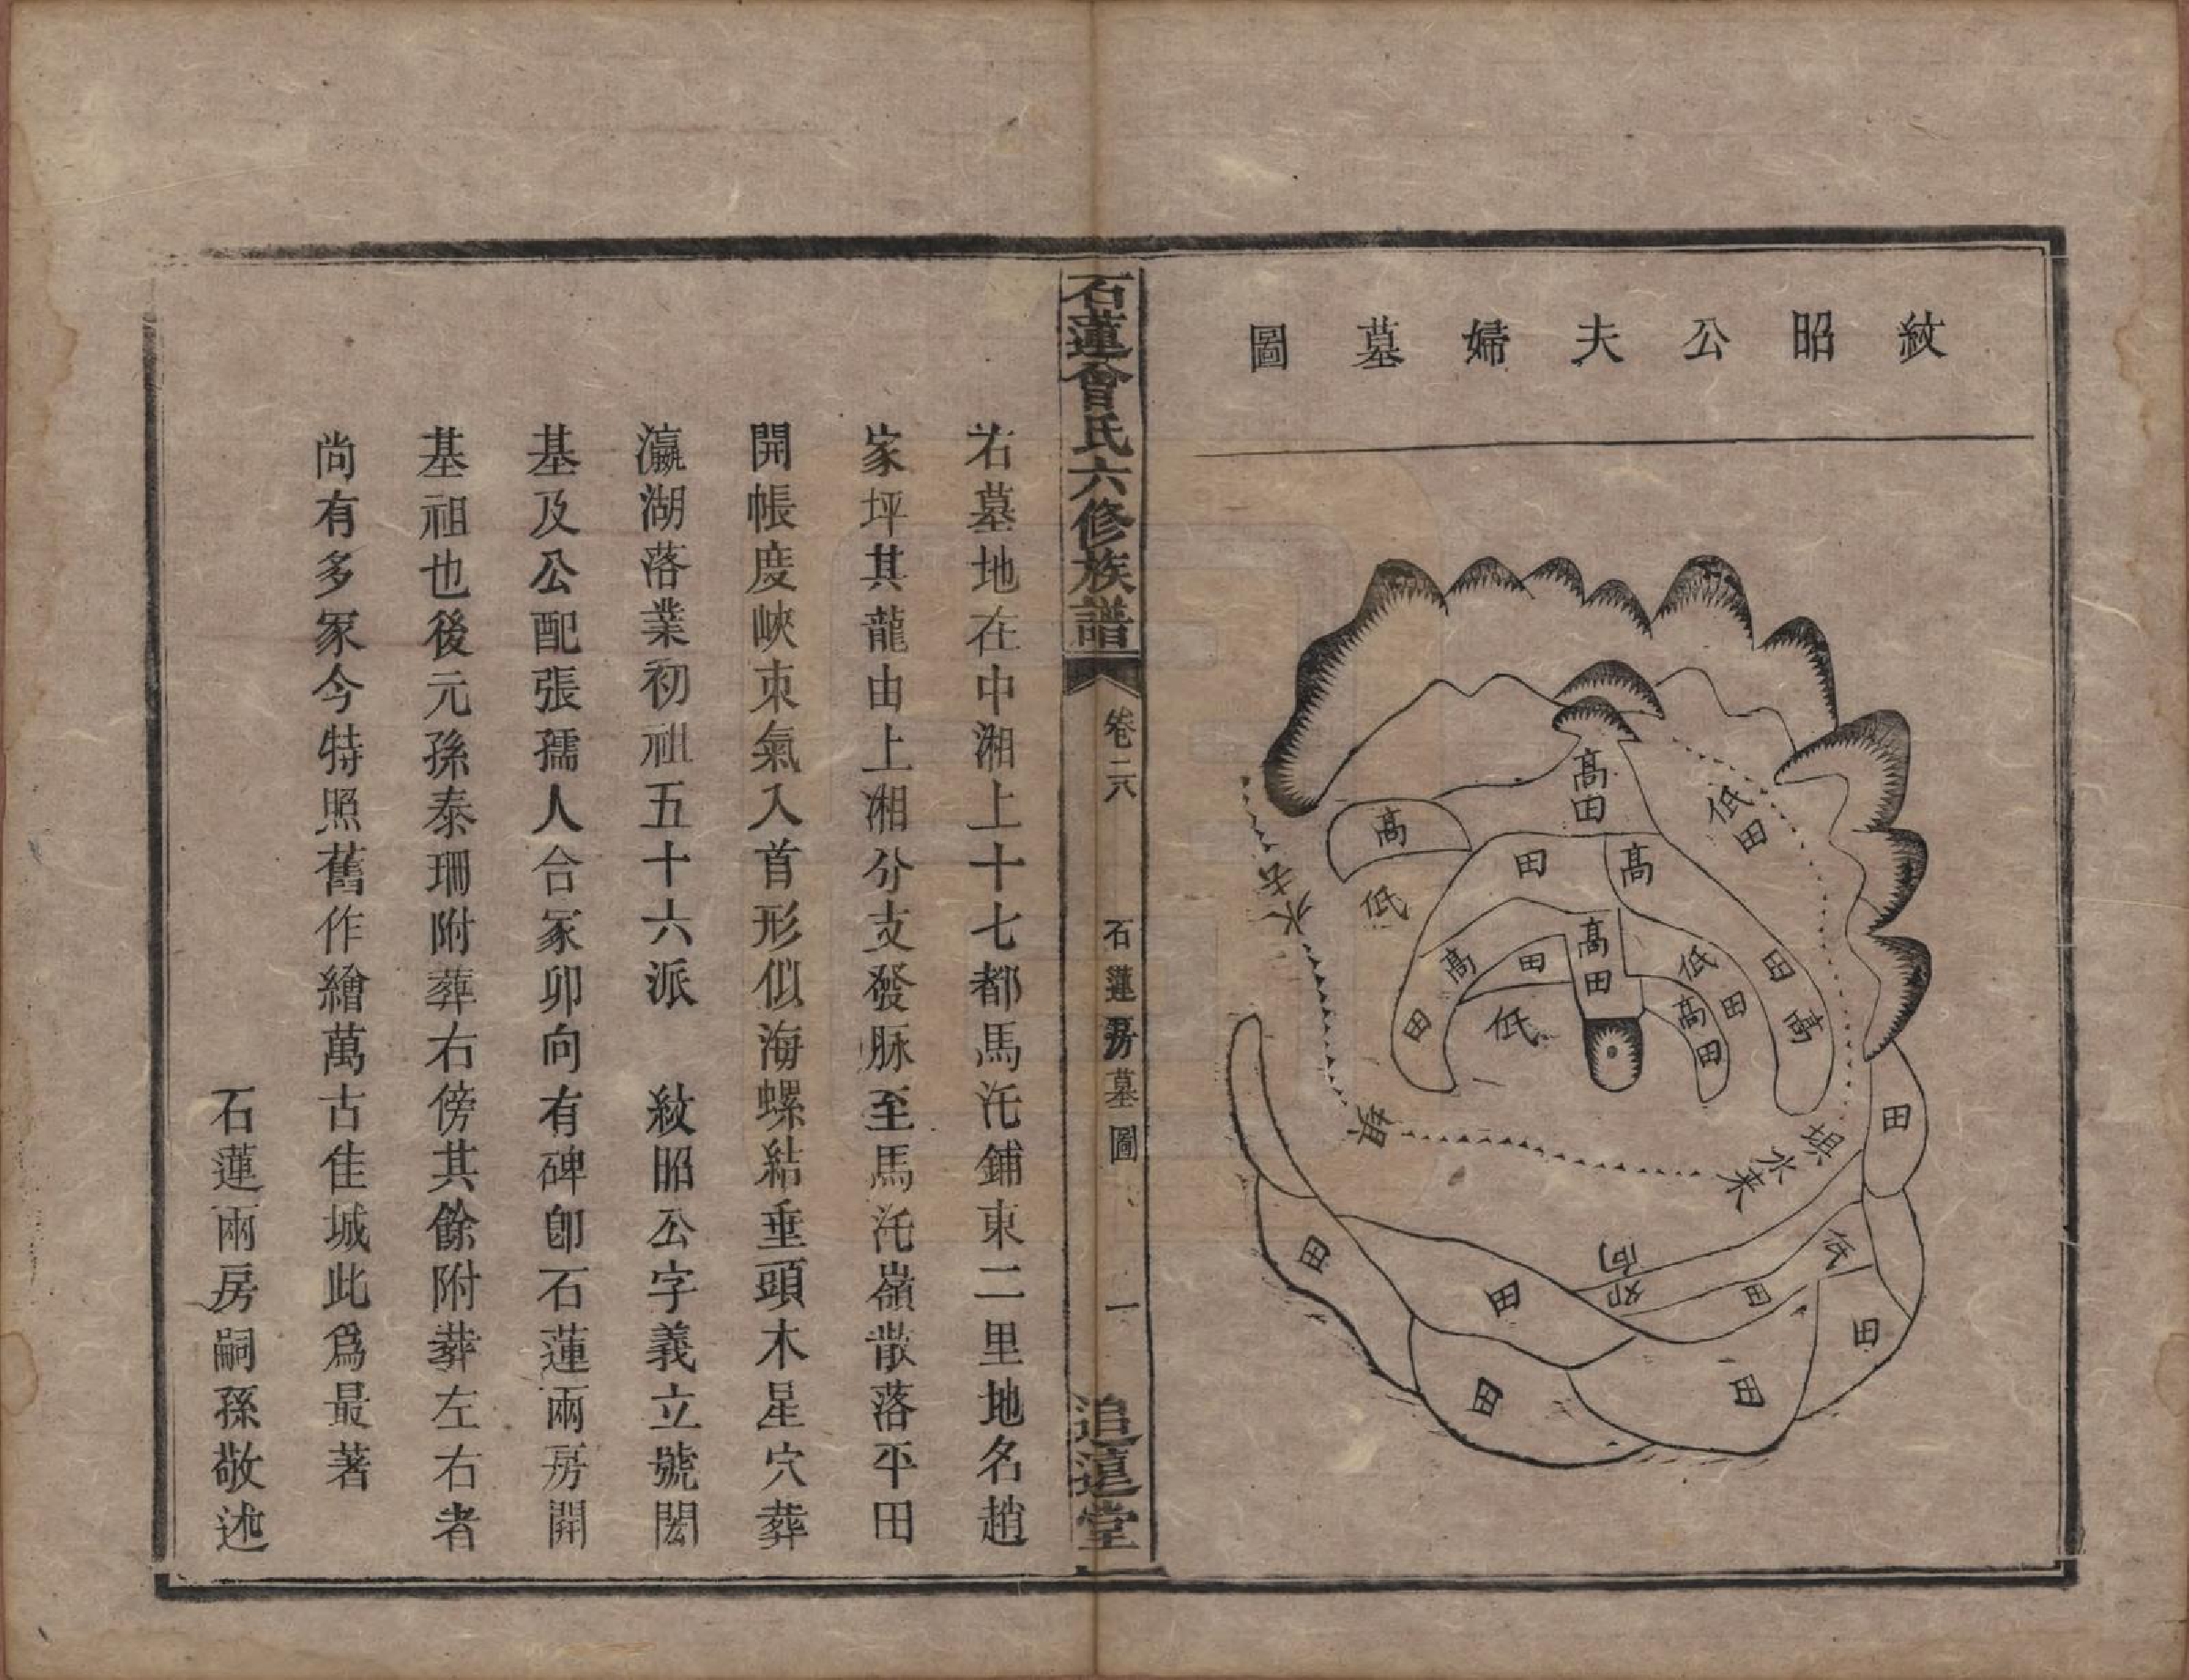 紋昭公夫婦墓圖
高田
高
低
田
高
低田
高
田
高田
田
低
高田
低田
田
高
水去
圳
圳水来
向
卯
低
田
田
田
田
田
田
田
石蓮曾氏六修族譜
卷二六
石蓮房墓圖
一
追遠堂
右墓地在中湘上十七都馬汑鋪東二里地名趙
家坪其龍由上湘分支發脉至馬汑嶺散落平田
開帳度峽束氣入首形似海螺結垂頭木星穴葬
瀛湖落業初祖五十六派　紋昭公字義立號閎
基及公配張孺人合冢卯向有碑卽石蓮兩房開
基祖也後元孫泰珊附葬右傍其餘附葬左右者
尚有多冢今特照舊作繪萬古佳城此爲最著
石蓮兩房嗣孫敬述